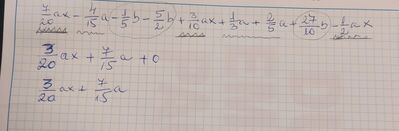 7/20 ax - 4/15 a - 1/5 b - 5/2 b + 3/10 ax + 1/3 a + 2/5 a + 27/10 b - 1/2 ax
3/20 ax + 7/15 a + 0
3/20 ax + 7/15 a